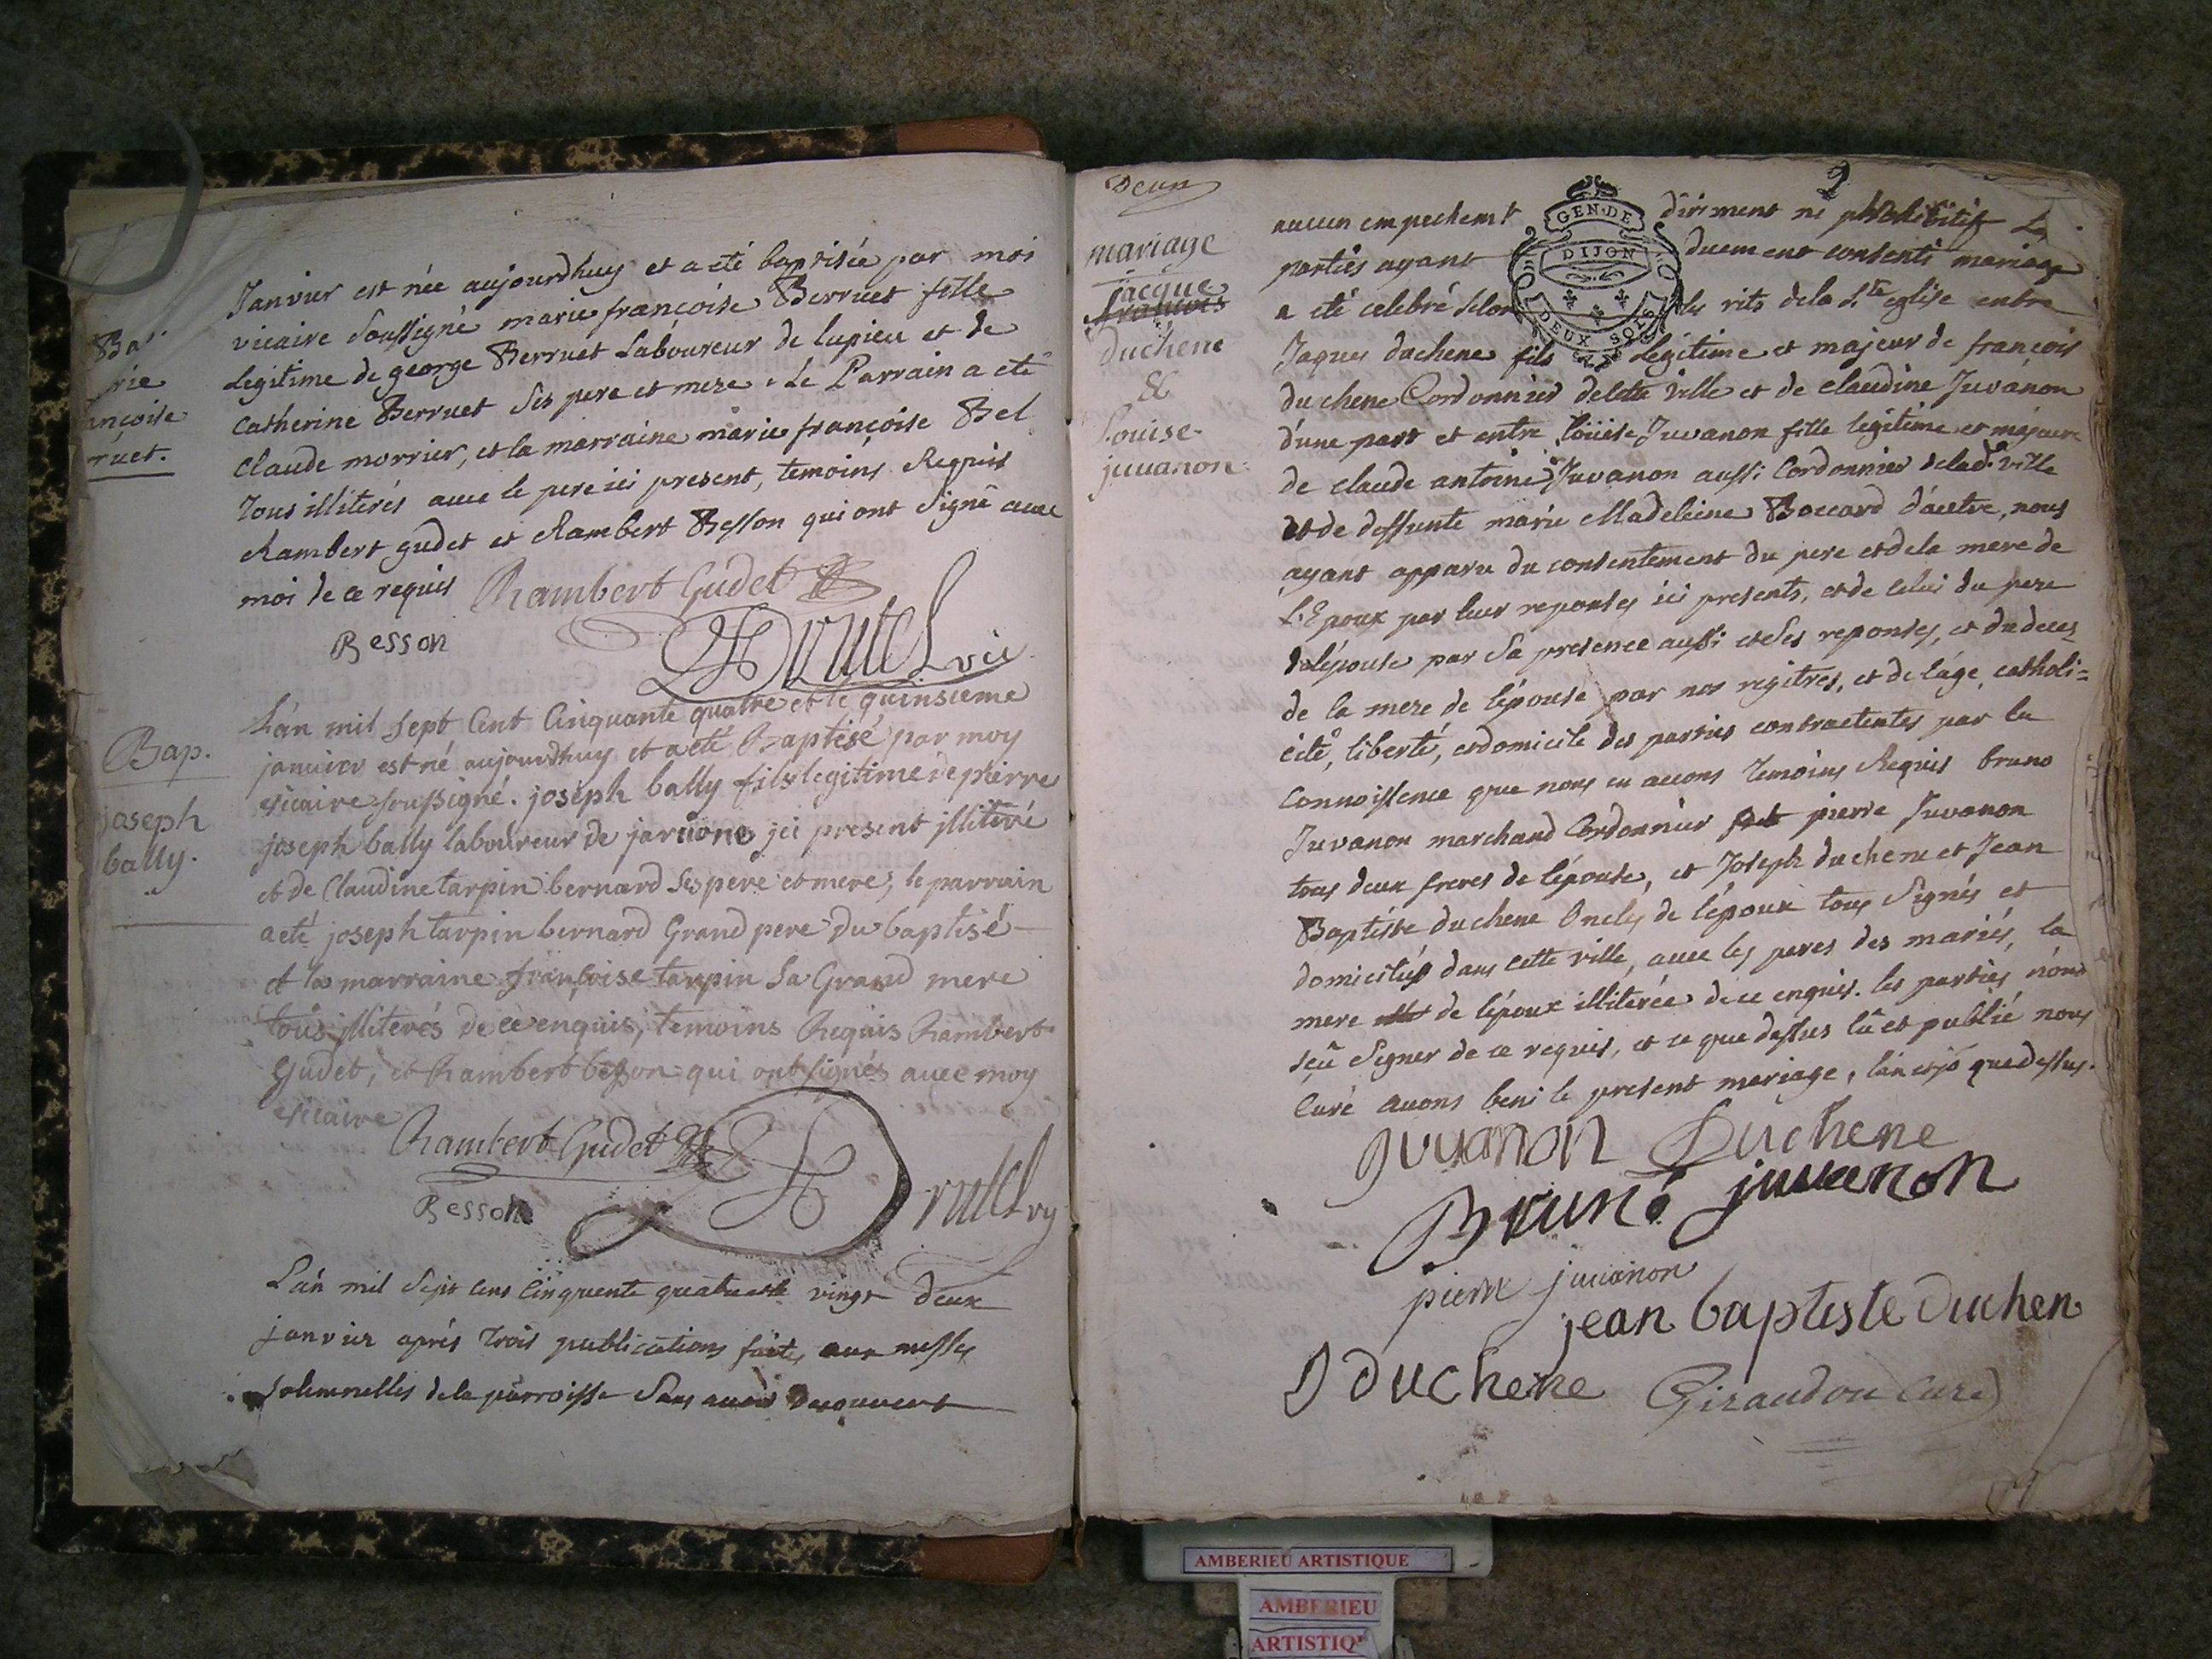 Janvier est née aujourdhuy et a eté baptisée par moi
vicaire Soussigné marie françoise Berruet fille
Legitime de george Berruet Laboureur de lupieu et de
Catherine Berruet Ses pere et mere. Le Parrain a eté
Claude morrier, et la marraine marie françoise Bel
tous illiterés avec le pere ici present, temoins Requis
Rambert gudet et Rambert Besson qui ont Signé avec
moi de ce requis Rambert Gudet
Besson
Drutel vic
Ba
rie
ançoise
rruet.
L'an mil Sept Cent Cinquante quatre et le quinsieme
janvier est né aujourdhuy et a eté Baptisé par moy
vicaire soussigné. joseph bally fils legitime de pierre
joseph bally laboureur de jarvone ici present illiteré
et de Claudine tarpin bernard Ses pere et mere, le parrain
a eté joseph tarpin bernard Grand pere Du baptisé
et la marraine françoise tarpin Sa Grand mere
tous illiterés de ce enquis, temoins Requis Rambert
Gudet, et Rambert besson qui ont signés avec moy
vicaire
Rambert Gudet
Besson
Drutel vy
Bap.
joseph
bally.
L'an mil Sept cens Cinquente quatre et le vingt deux
janvier aprés trois publications faites aux messes
Solemnelles de la parroisse Sans avoir decouvert
Deux
2
mariage
jacque
françois
duchene
&
Louise
juvanon
aucun empechemt dirimens ni prohibitif Les
parties ayant duement consenti mariage
a eté celebré selon les rits de la Ste eglise entre
Jaques duchene fils Legitime et majeur de françois
duchene Cordonnier de cette ville et de claudine Juvanon
d'une part et entre Loüise Juvanon fille legitime et majeure
de claude antoine Juvanon aussi Cordonnier de lad. ville
et de deffunte marie Madeleine Boccard d'autre, nous
ayant apparu du consentement du pere et de la mere de
L'Epoux par leur reponses ici presents, et de celui du pere
de l'épouse par Sa presence aussi et Ses reponses, et du deces
de la mere de l'épouse par nos regitres, et de l'âge, catholi=
cité, liberté, et domicile des parties contractentes par la
Connoissence que nous en avons temoins Requis bruno
Juvanon marchand Cordonnier pierre Juvanon
tous deux freres de l'épouse, et Joseph duchene et Jean
Baptiste duchene Oncles de l'époux tous Signés et
domiciliés dans cette ville, avec les peres des mariés, la
mere de l'époux illiterée de ce enquis. les parties n'ont
sçu Signer de ce requis, et ce que dessus lû et publié nous
Curé avons beni le present mariage, l'an et jo que dessus.
juvanon Duchene
Bruno juvanon
pierre juvanon
jean baptiste duchen
J duchene
Giraudon Curé
GEN. DE
DIJON
DEUX SOLS
AMBERIEU ARTISTIQUE
AMBERIEU
ARTISTIQ